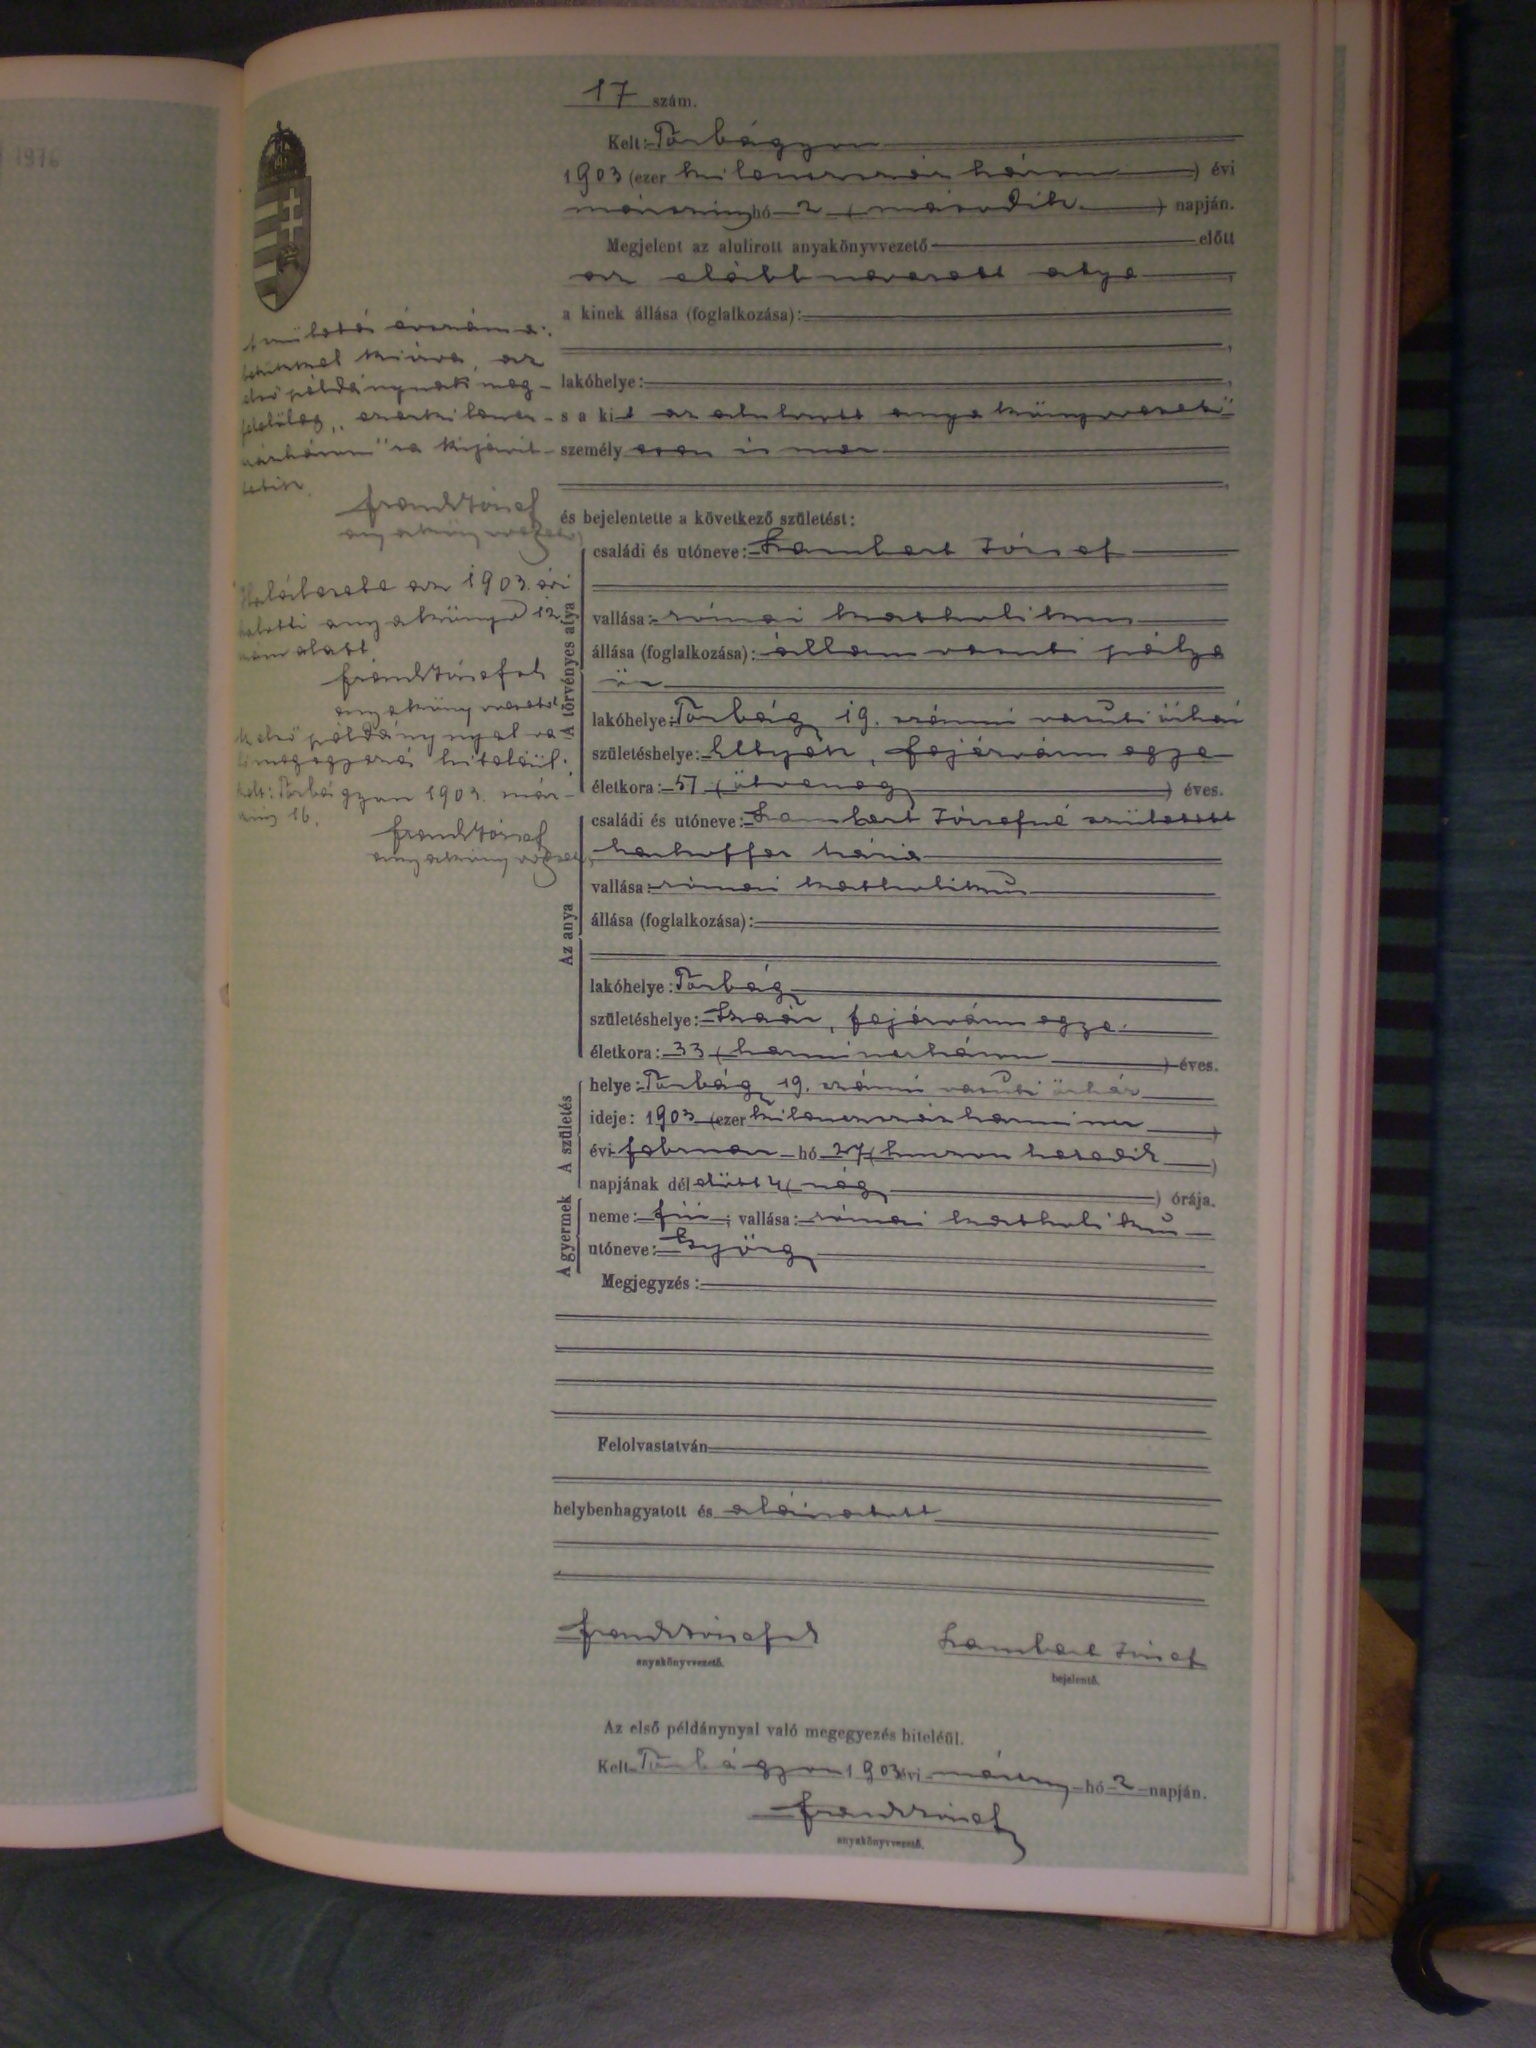 1916
17 szám.
Kelt: Törbágyon
1903 (ezer kilenczszázhárom) évi
márczius hó 2 (második) napján.
Megjelent az alulirott anyakönyvvezető előtt
az alább nevezett atya,
a kinek állása (foglalkozása):
lakóhelye:
s a kit az alulirott anyakönyvvezető
személyesen ismer
és bejelentette a következő születést:
A törvényes atya
családi és utóneve: Lambert József
vallása: római katholikus
állása (foglalkozása): állam vasuti pálya
őr
lakóhelye: Törbág 19. számú vasuti őrház
születéshelye: Etyek, fejérvármegye
életkora: 51 (ötvenegy) éves.
Az anya
családi és utóneve: Lambert Józsefné született
Mária
vallása: római katholikus
állása (foglalkozása):
lakóhelye: Törbág
születéshelye: Szaár, fejérvármegye
életkora: 33 (harminczhárom) éves.
A születés
helye: Törbág 19. számú vasuti őrház
ideje: 1903 (ezer kilenczszáz harmincz)
évi február hó 27 (huszon hetedik)
napjának délelőtt 4 (négy) órája.
A gyermek
neme: fiú; vallása: római katholikus
utóneve: György
Megjegyzés:
Felolvastatván
helybenhagyatott és aláiratott
Frank József
anyakönyvvezető.
Lambert József
bejelentő.
Az első példánynyal való megegyezés hiteléül.
Kelt Törbágyon 1903 évi márczius hó 2 napján.
Frank József
anyakönyvvezető.
A születési évszáma
betűkkel kiírva, az
első példánynak meg-
felelőleg "ezerkilencz-
százhárom"ra kijavít-
tatik.
Frank József
anyakönyvvezető
Halálesete az 1903. évi
halotti anyakönyv 12.
szám alatt
Frank József
anyakönyvvezető
Az első példánynyal va-
ló megegyezés hiteléül.
Kelt: Törbágyon 1903. már-
czius 16.
Frank József
anyakönyvvezető